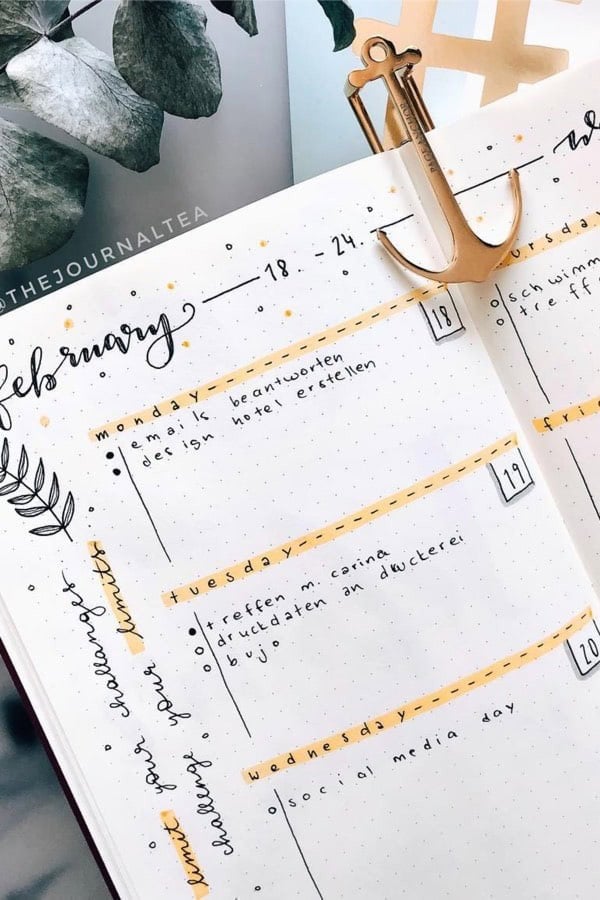 @THEJOURNALTEA
PAGE ANCHOR
february 18. - 24.
monday 18
emails beantworten
design hotel erstellen
tuesday 19
treffen m. carina
druckdaten an druckerei
bujo
wednesday 20
social media day
limit your challanges
challenge your limits
ursday
schwimm
treff
fri